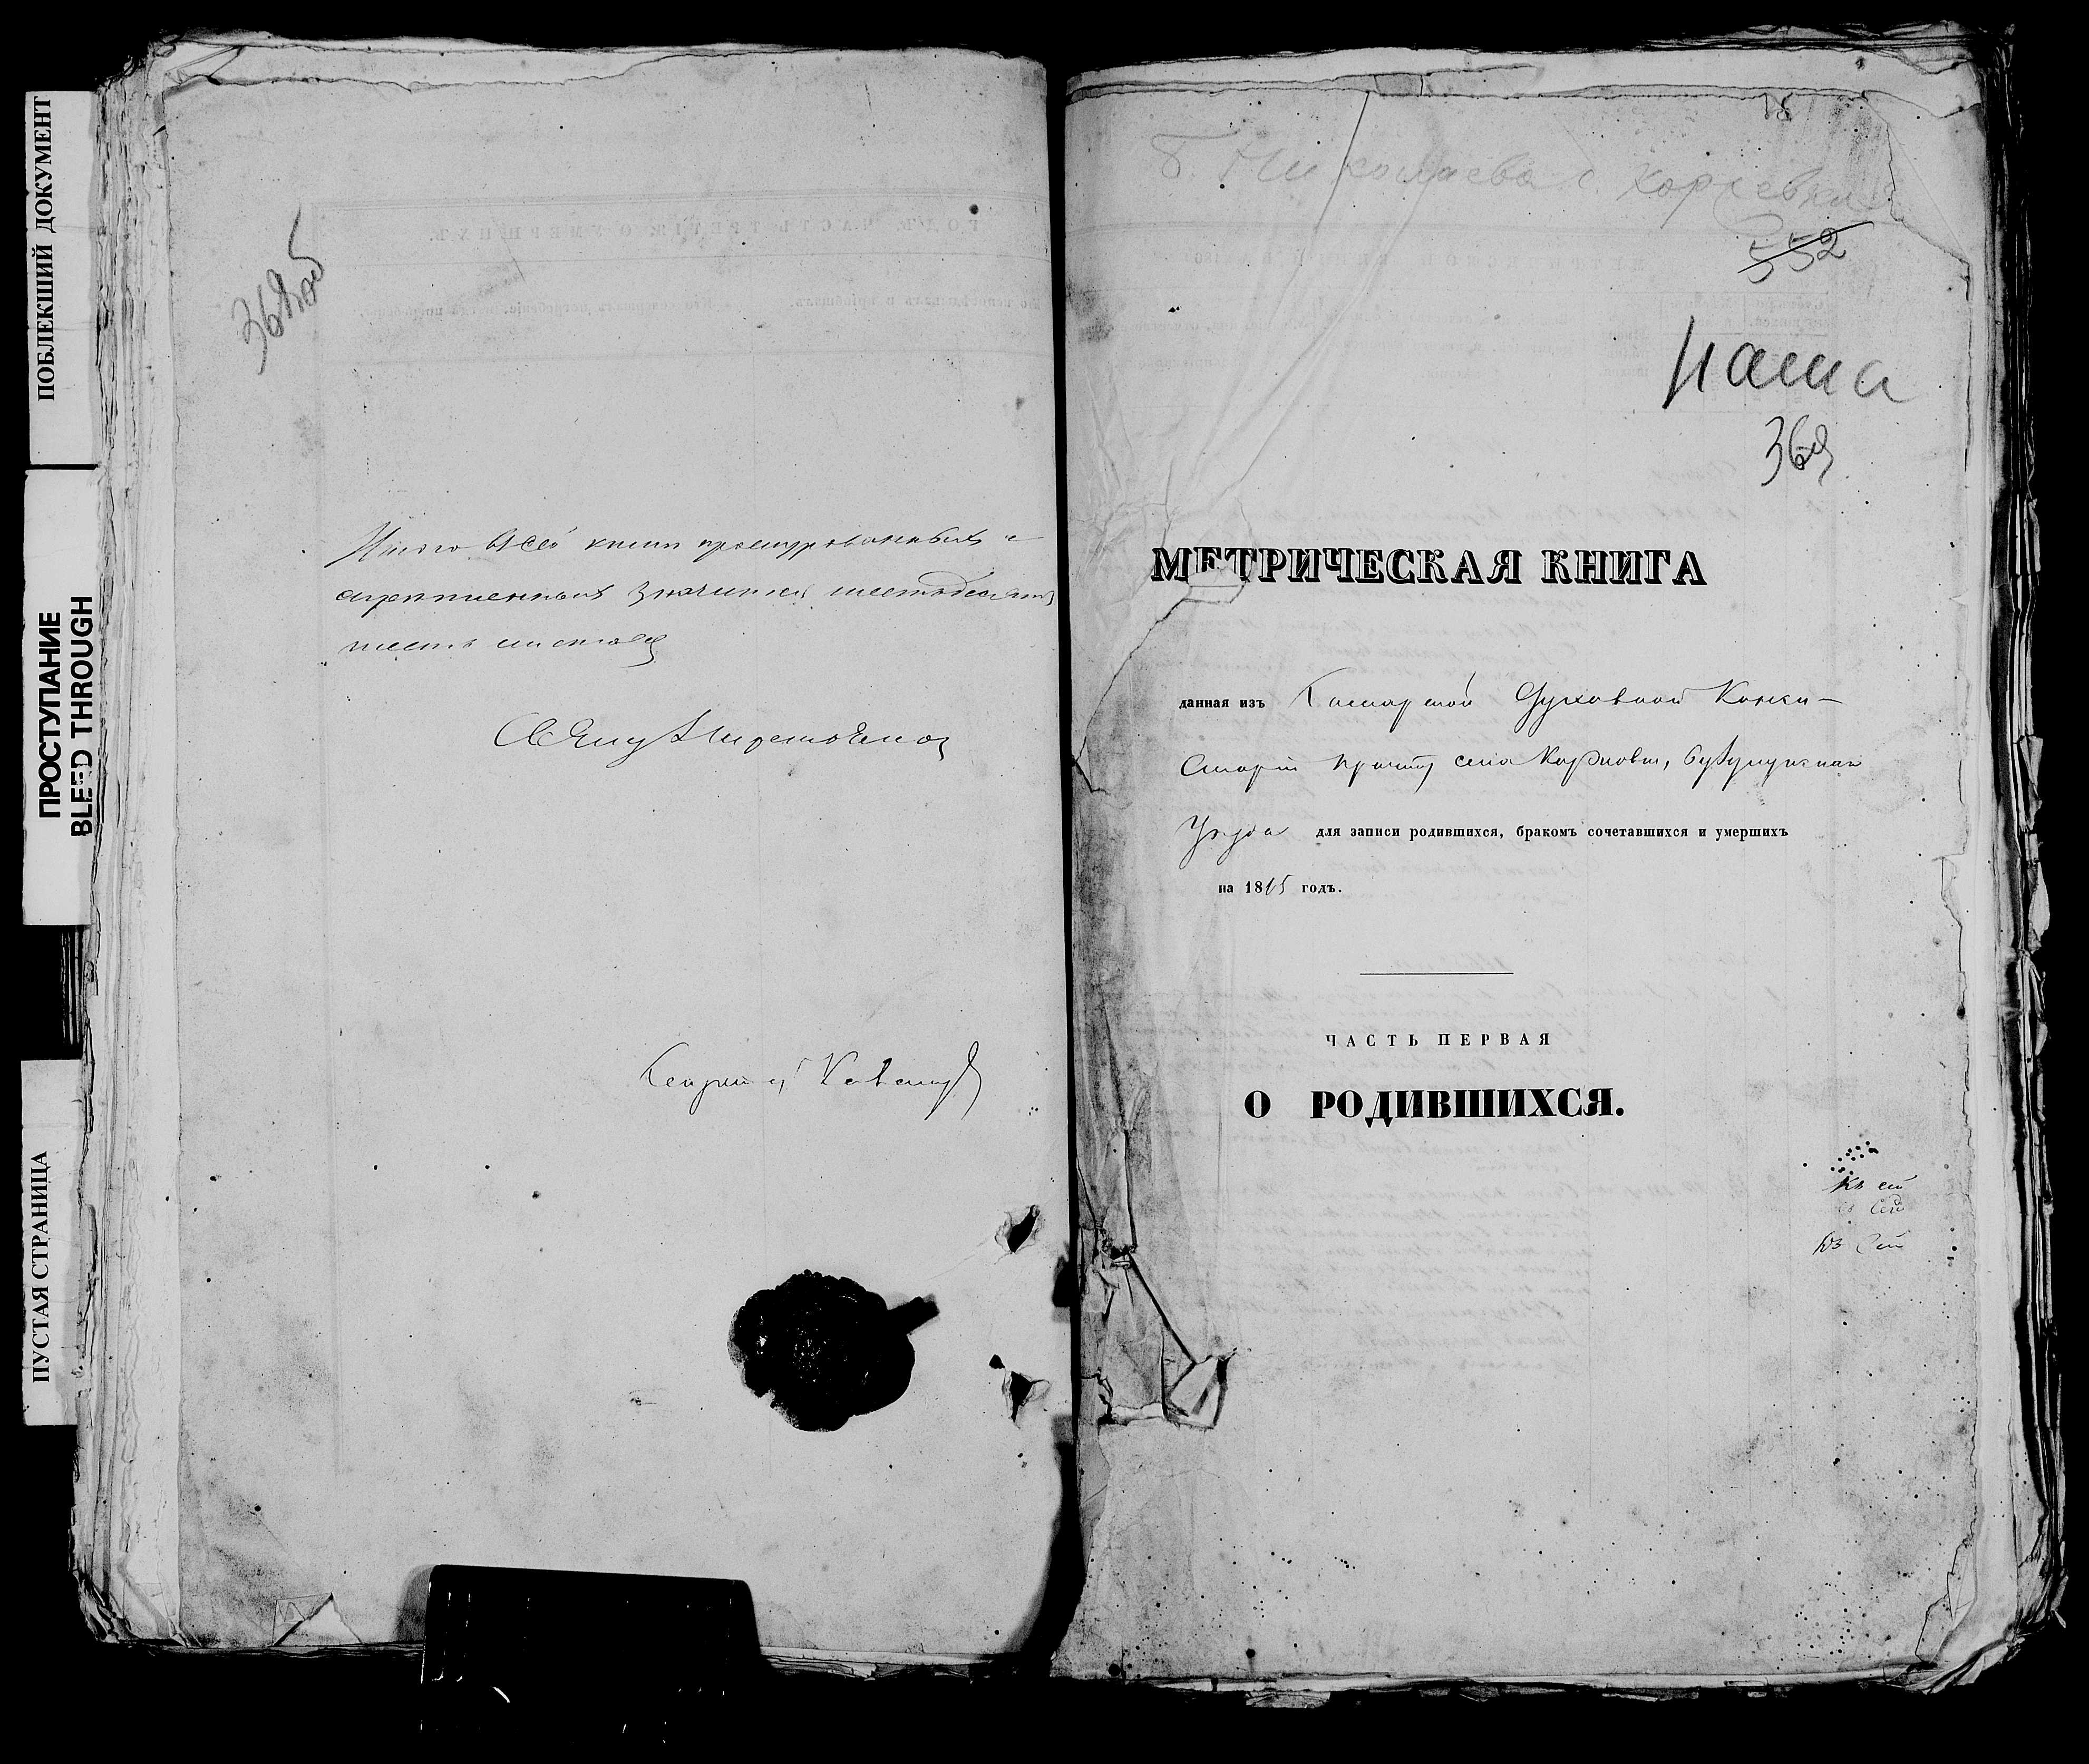 ПОБЛЕКШИЙ ДОКУМЕНТ
ПРОСТУПАНИЕ
BLEED THROUGH
ПУСТАЯ СТРАНИЦА
368 об
Итого въ сей книгѣ прошнурованныхъ и
скрѣпленныхъ значится шестьдесятъ
шесть листовъ
Секретарь
Б. Николаева с.
552
наша
369
МЕТРИЧЕСКАЯ КНИГА
данная изъ Самарской Духовной Конси-
сторіи причту села Карповки, Бузулукскаго
Уѣзда для записи родившихся, бракомъ сочетавшихся и умершихъ
на 1865 годъ.
ЧАСТЬ ПЕРВАЯ
О РОДИВШИХСЯ.
Къ сей
Къ сей